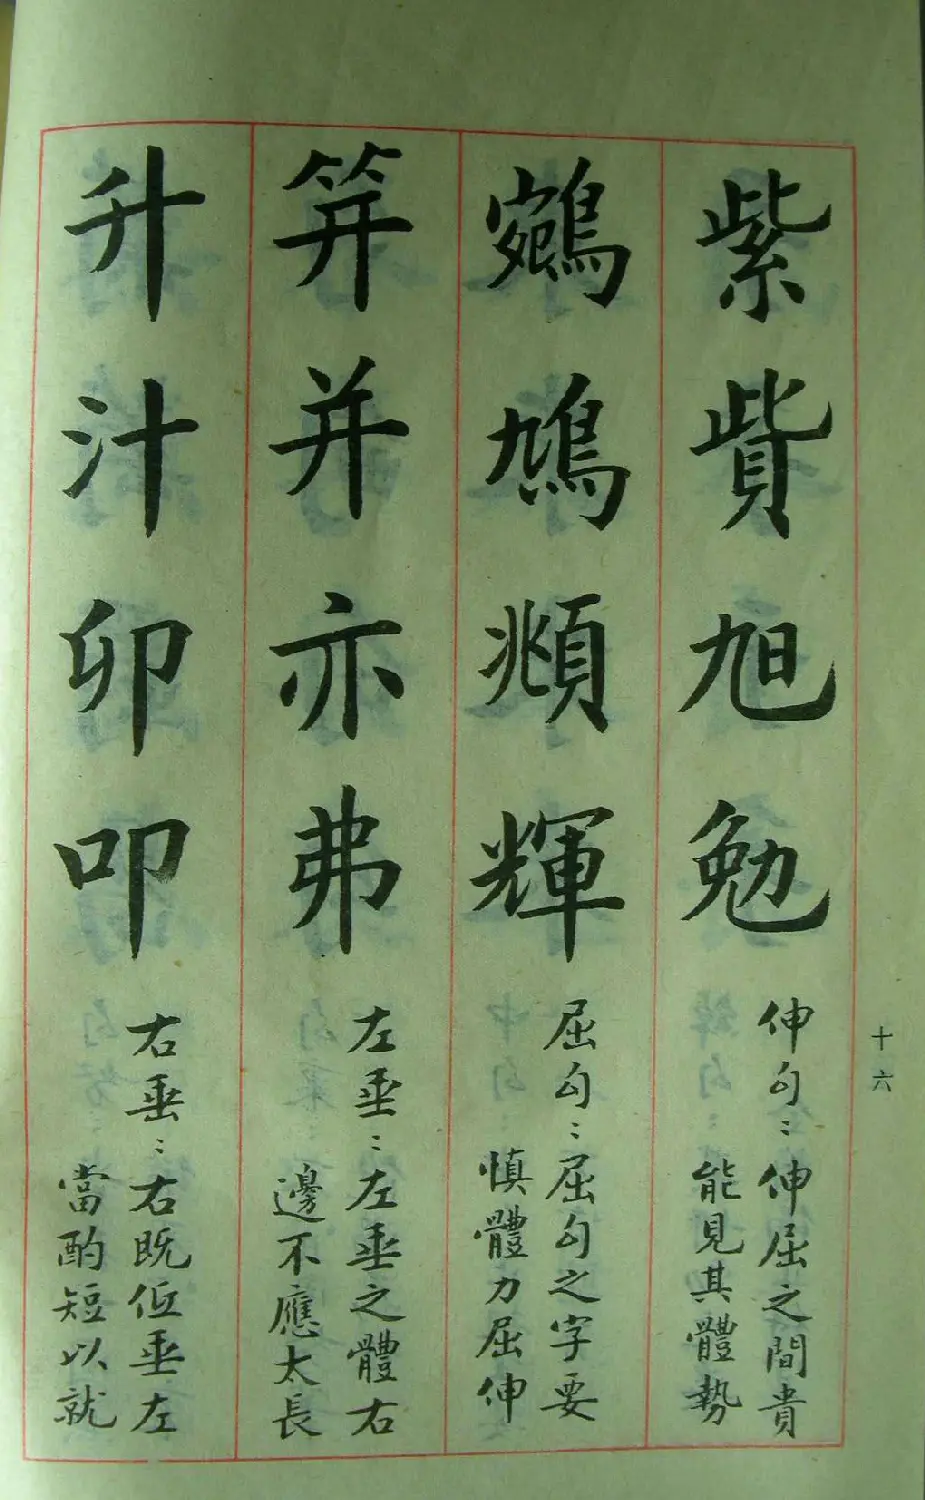 紫
貲
旭
勉
伸勾：伸屈之間貴
能見其體勢
鵷
鳩
頫
輝
屈勾：屈勾之字要
慎體力屈伸
笄
并
亦
弗
左垂：左垂之體右
邊不應太長
升
汁
卯
叩
右垂：右既低垂左
當酌短以就
十六